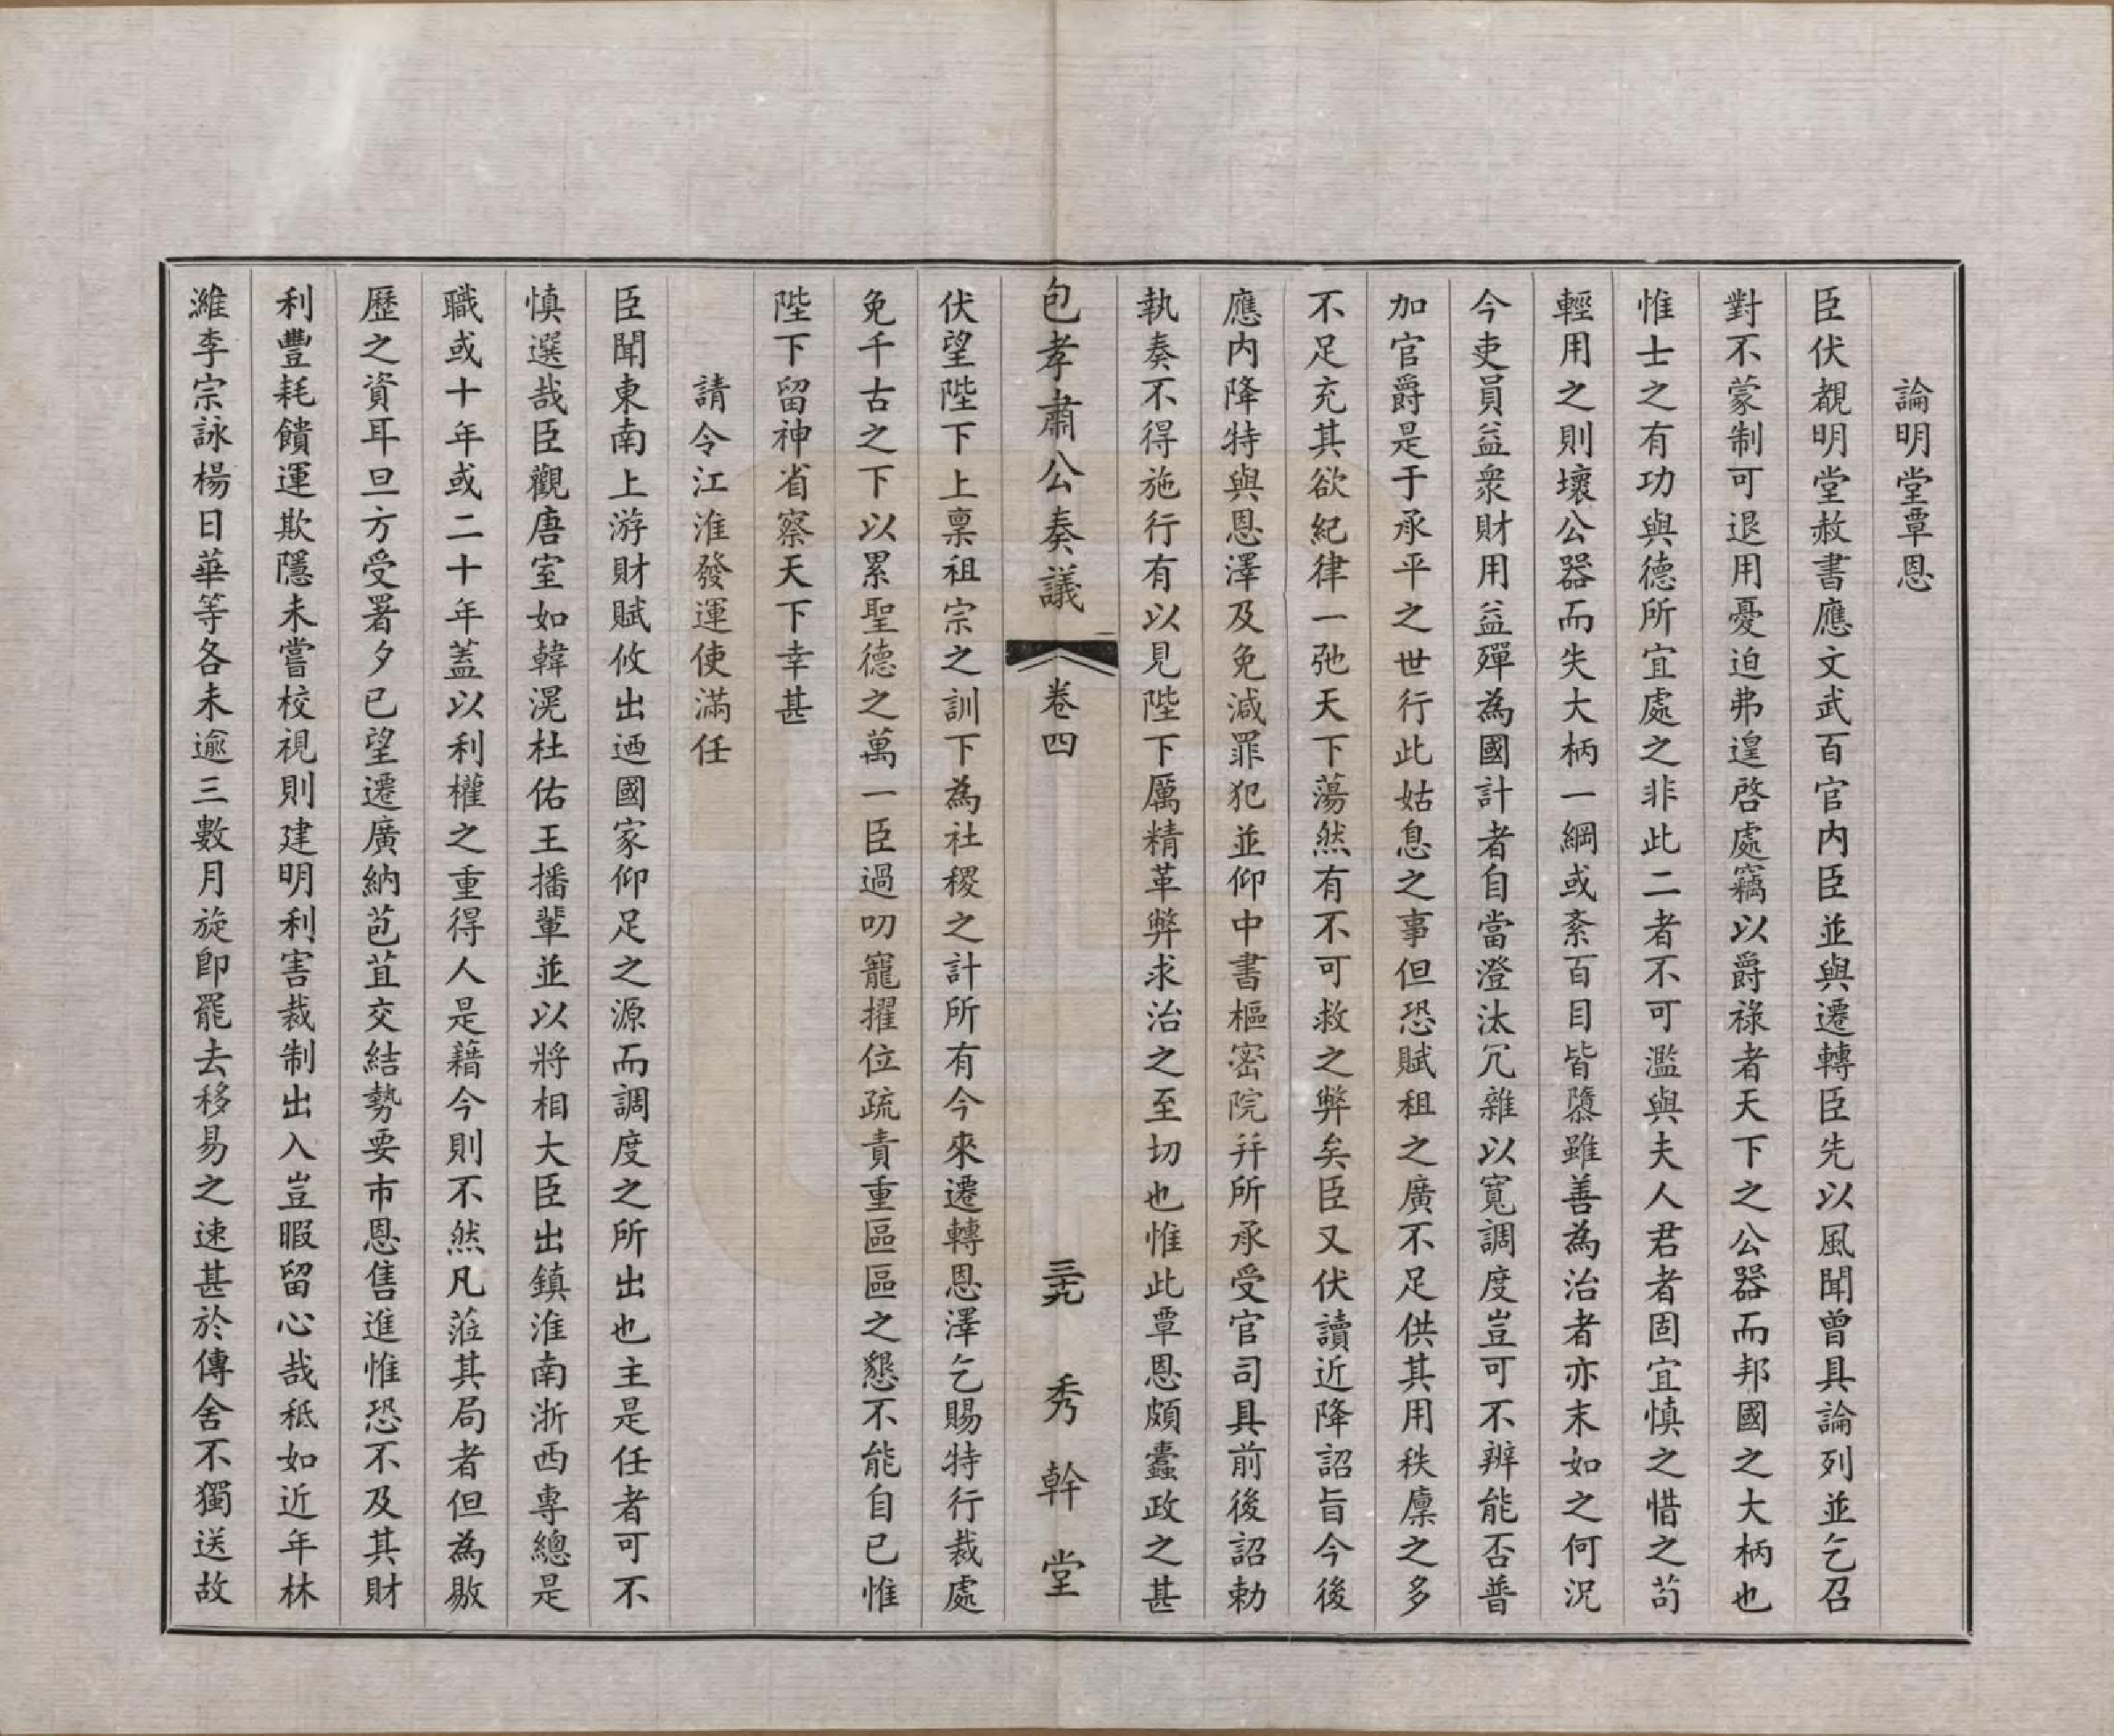 論明堂覃恩
臣伏覩明堂赦書應文武百官內臣並與遷轉臣先以風聞曾具論列並乞召
對不蒙制可退用憂迫弗遑啓處竊以爵祿者天下之公器而邦國之大柄也
惟士之有功與德所宜處之非此二者不可濫與夫人君者固宜慎之惜之苟
輕用之則壞公器而失大柄一綱或紊百目皆隳雖善為治者亦末如之何況
今吏員益衆財用益殫為國計者自當澄汰冗雜以寬調度豈可不辨能否普
加官爵是于承平之世行此姑息之事但恐賦租之廣不足供其用秩廩之多
不足充其欲紀律一弛天下蕩然有不可救之弊矣臣又伏讀近降詔旨今後
應內降特與恩澤及免減罪犯並仰中書樞密院并所承受官司具前後詔勅
執奏不得施行有以見陛下厲精革弊求治之至切也惟此覃恩頗蠹政之甚
包孝肅公奏議
卷四
三九
秀幹堂
伏望陛下上稟祖宗之訓下為社稷之計所有今來遷轉恩澤乞賜特行裁處
免千古之下以累聖德之萬一臣過叨寵擢位疏責重區區之懇不能自已惟
陛下留神省察天下幸甚
請令江淮發運使滿任
臣聞東南上游財賦攸出迺國家仰足之源而調度之所出也主是任者可不
慎選哉臣觀唐室如韓滉杜佑王播輩並以將相大臣出鎮淮南浙西專總是
職或十年或二十年蓋以利權之重得人是藉今則不然凡蒞其局者但為敭
歷之資耳旦方受署夕已望遷廣納苞苴交結勢要市恩售進惟恐不及其財
利豐耗饋運欺隱未嘗校視則建明利害裁制出入豈暇留心哉秪如近年林
濰李宗詠楊日華等各未逾三數月旋卽罷去移易之速甚於傳舍不獨送故